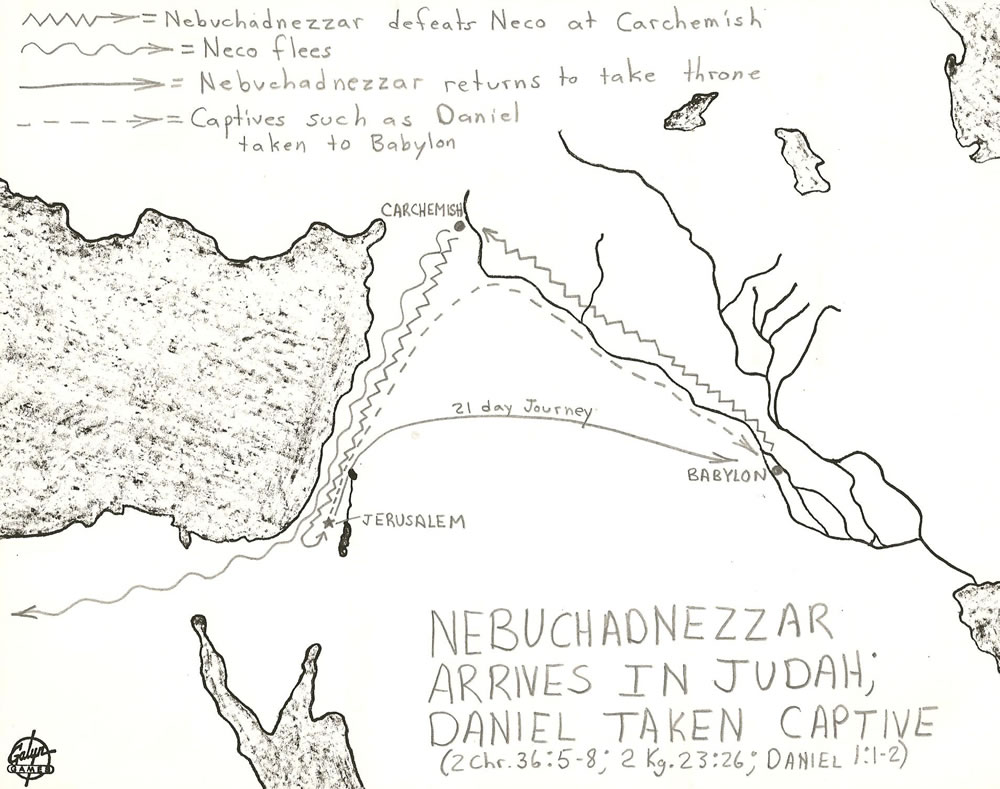 = Nebuchadnezzar defeats Neco at Carchemish
= Neco flees
= Nebuchadnezzar returns to take throne
= Captives such as Daniel
taken to Babylon
CARCHEMISH
21 day Journey
BABYLON
JERUSALEM
NEBUCHADNEZZAR
ARRIVES IN JUDAH;
DANIEL TAKEN CAPTIVE
(2 Chr. 36:5-8; 2 Kg. 23:26; DANIEL 1:1-2)
Galyn